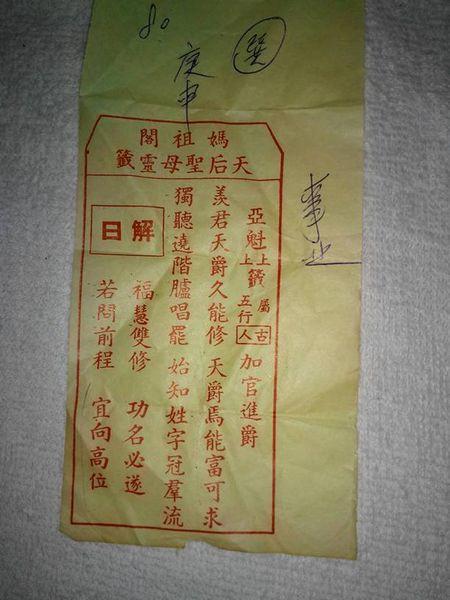 80
庚申
巽
事业
媽祖閣
天后聖母靈籤
亞魁 上上籤 屬五行 古人 加官進爵
羨君天爵久能修 天爵焉能富可求
獨聽遶階臚唱罷 始知姓字冠羣流
解日
福慧雙修 功名必遂
若問前程 宜向高位